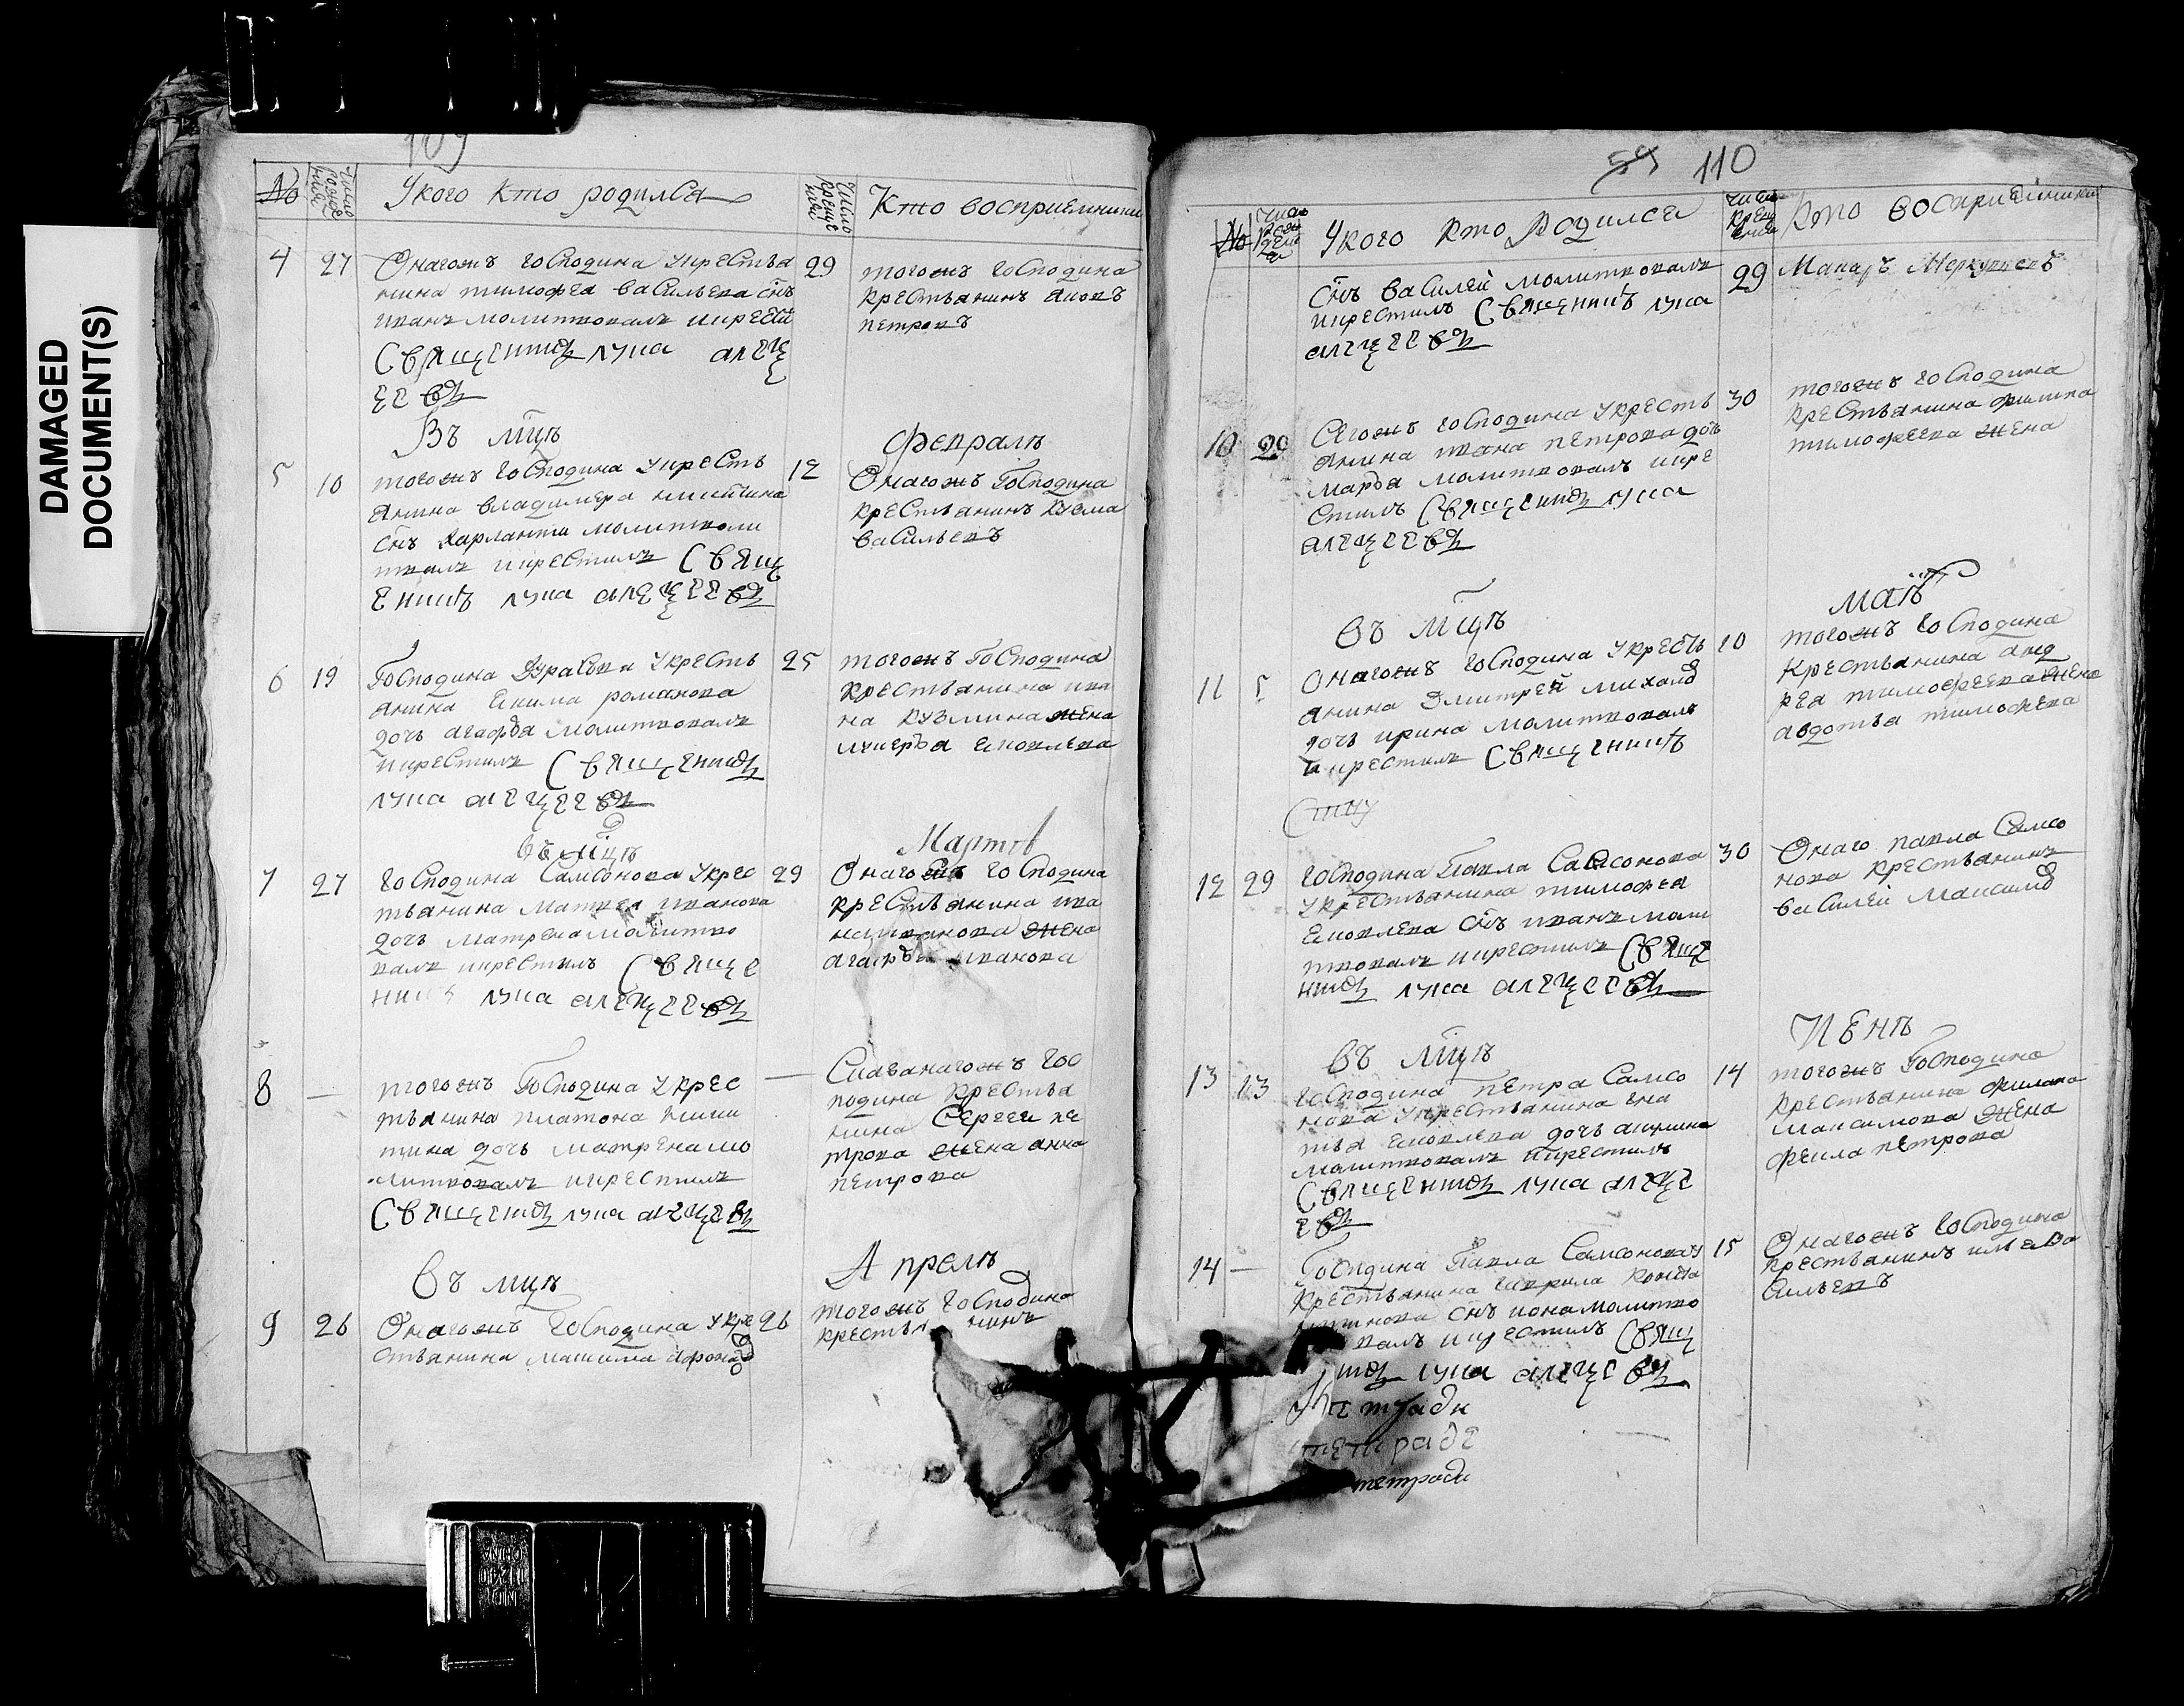 DAMAGED
DOCUMENT(S)
109
№
Число рожде нiя
У кого кто родился
Число креще нiя
Кто восприемники
4 27 Онагожъ господина укрестья
нина тимофея васильева снъ
иванъ молитвовалъ икрести
Священикъ лука алеѯ
еевъ
29 тогожъ господина
крестьянинъ яковъ
петровъ
Въ мцѣ Февралѣ
5 10 тогожъ господина укресть
янина владимера никитина
снъ харлампи молитволи
твалъ икрестилъ Свящ
еникъ лука алеѯеевъ
12 Онагожъ Господина
крестьянинъ кузма
васильевъ
6 19 Господина Дурасова укресть
янина Екима романова
дочь агафья молитвовалъ
икрестилъ Священикъ
лука алеѯеевъ
25 тогожъ Господина
крестьянина ива
на кузмина жена
лукерья яковлева
въ мцѣ Мартѣ
7 27 господина Самсонова укрес
тьянина матвея иванова
дочь матрена молитво
валъ икрестилъ Священ
никъ лука алеѯеевъ
29 Онагожъ господина
крестьянина ива
на иванова жена
агафья иванова
8 — тогожъ Господина укрес
тьянина платона ники
тина дочь матрена мо
литвовалъ икрестилъ
Священикъ лука алеѯеевъ
— Гос
подина крестья
нина Сергеи пе
трова жена анна
петрова
въ мцѣ Апрелѣ
9 26 Онагожъ господина укре
стьянина макима афона
26 тогожъ господина
крестьянинъ
59 110
№
число рождения
У кого кто Родился
число крещения
Кто восприемники
снъ василей молитвовалъ
икрестилъ Священикъ лука
алеѯеевъ
29 Макаръ Меркульевъ
10 29 Сегожъ господина укресть
янина ивана петрова дочь
марфа молитвовалъ икре
стилъ Священикъ лука
алеѯеевъ
30 тогожъ господина
крестьянина
тимофеева жена
въ мцѣ маиѣ
11 5 Онагожъ господина укресть
янина Дмитрей михаило
дочь ирина молитвовалъ
икрестилъ Священикъ
10 тогожъ господина
крестьянина анд
рея тимофеева жена
авдотья тимофева
12 29 господина Павла Самсонова
укрестьянина тимофея
яковлева снъ иванъ моли
твовалъ икрестилъ Свяще
никъ лука алеѯеевъ
30 Онаго павла Самсо
нова крестьянинъ
василей максимо
въ мцѣ Июнѣ
13 13 господина петра Самсо
нова укрестьянина игна
тья яковлева дочь акулина
молитвовалъ икрестилъ
Священикъ лука алеѯее
въ
14 тогожъ Господина
крестьянина филипа
максимова жена
фекла петрова
14 — Господина Павла Самсонова у
крестьянина гаврила
снъ иона молитво
валъ икрестилъ Свящ
никъ лука алеѯеевъ
тетради
тетраде
тетради
15 Онагожъ господина
крестьянинъ илья ва
сильевъ